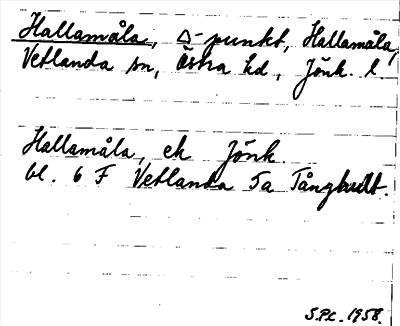 Hallamåla, Δ-punkt, Hallamåla,
Vetlanda sn, Östra hd, Jönk. l
Hallamåla, ek Jönk.
bl. 6 F Vetlanda 5a Tånghult.
S.P.L. 1958.